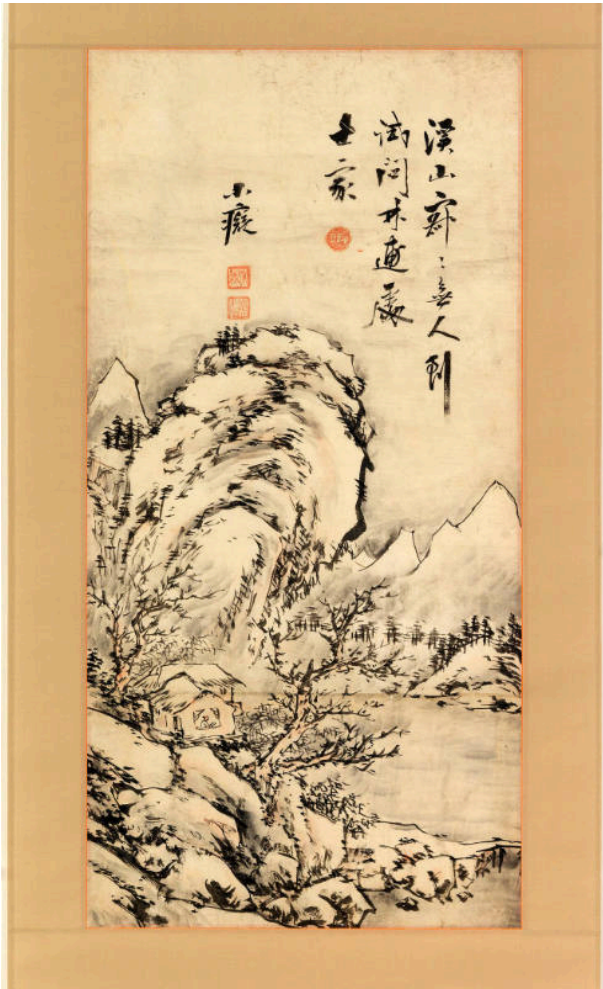 溪山寂〻無人到
試問林逋處
士家
小癡